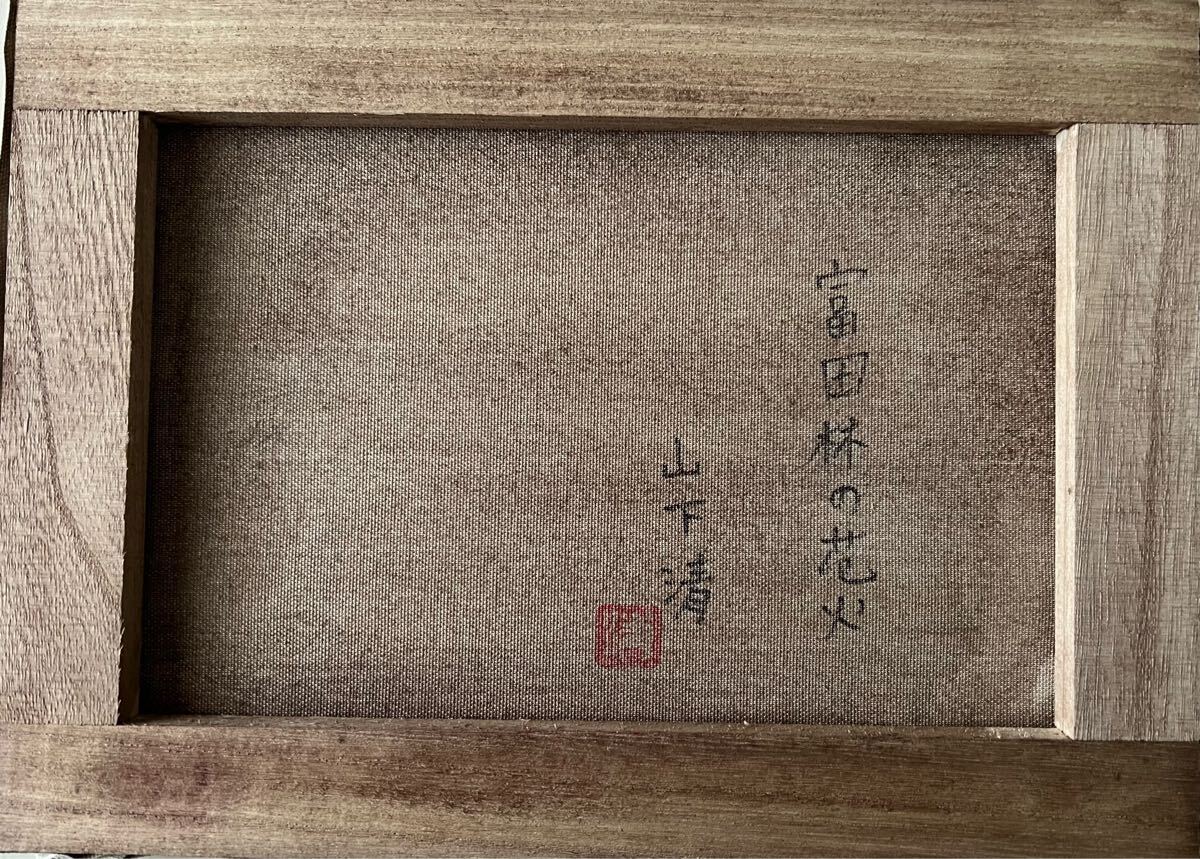 富田林の花火
山下清